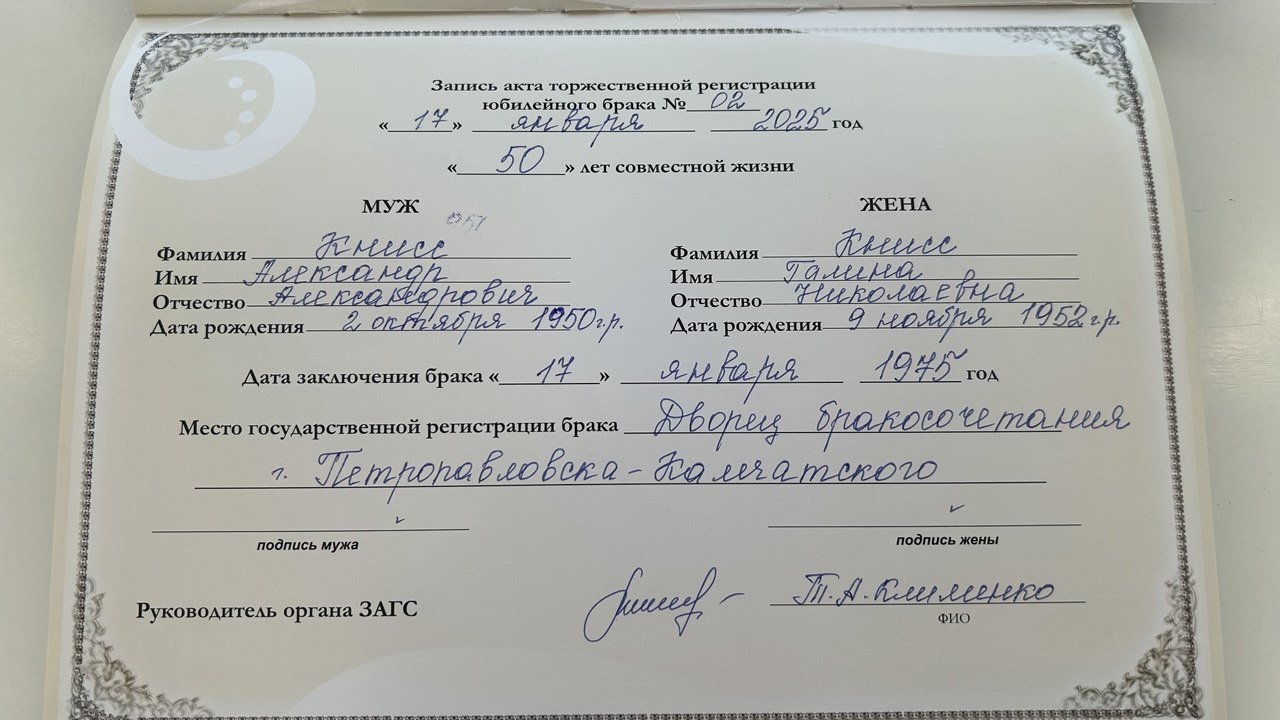 Запись акта торжественной регистрации
юбилейного брака № 02
« 17 » января 2025 год
« 50 » лет совместной жизни
МУЖ ЖЕНА
Фамилия Книсс Фамилия Книсс
Имя Александр Имя Галина
Отчество Александрович Отчество Николаевна
Дата рождения 2 октября 1950 г.р. Дата рождения 9 ноября 1952 г.р.
Дата заключения брака « 17 » января 1975 год
Место государственной регистрации брака Дворец бракосочетания
г. Петропавловска-Камчатского
подпись мужа подпись жены
Руководитель органа ЗАГС Т.А. Клименко
ФИО